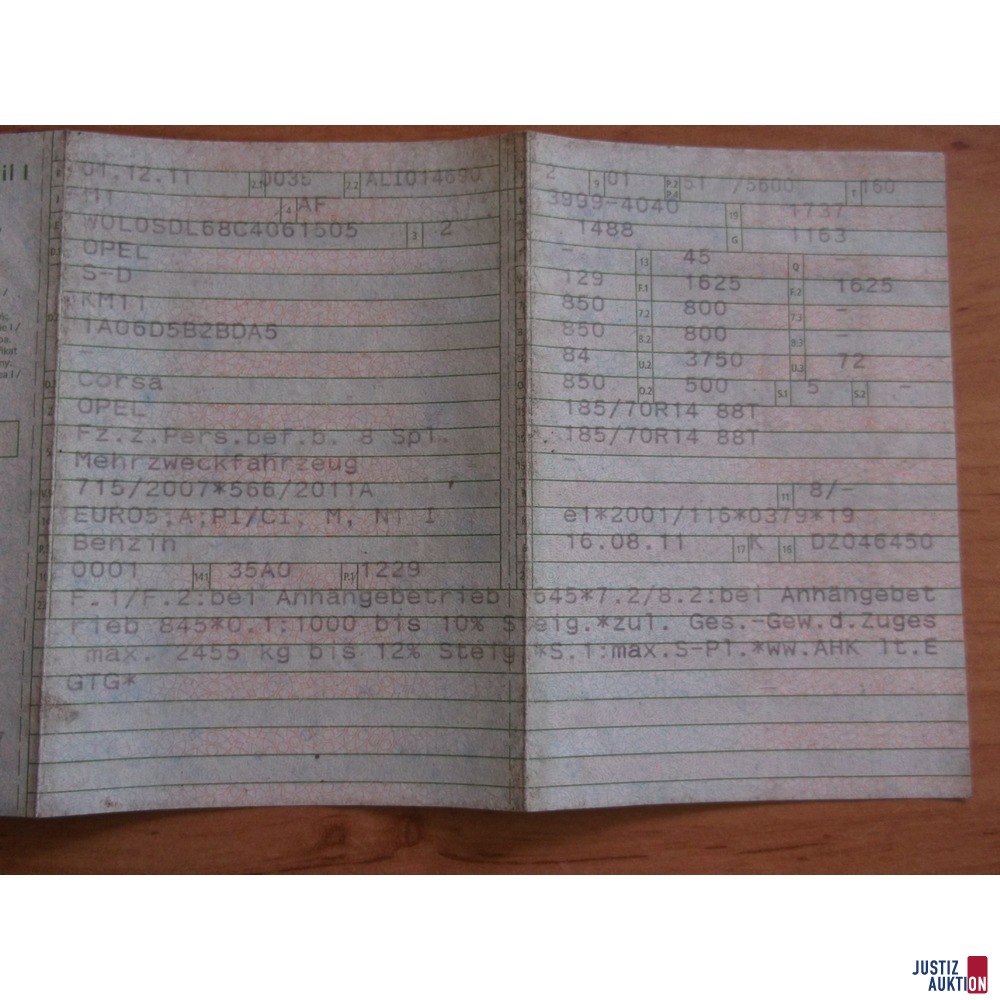 il I
01.12.11 2.1 0035 2.2 ALI014690
M1 4 AF
W0L0SDL68C4061505 3 2
OPEL
S-D
KM11
1A06D5B2BDA5
-
Corsa
OPEL
Fz.z.Pers.bef.b. 8 Spl.
Mehrzweckfahrzeug
715/2007*566/2011A
EURO5;A;PI/CI, M, N1 I
Benzin
0001 14.1 35A0 P.1 1229
2 9 01 P.2 P.4 51 /5600 T 160
3999-4040 19 1737
1488 G 1163
- 13 45 Q -
129 F.1 1625 F.2 1625
850 7.2 800 7.3 -
850 8.2 800 8.3 -
84 U.2 3750 U.3 72
850 O.2 500 S.1 5 S.2 -
185/70R14 88T
185/70R14 88T
-
11 8/-
e1*2001/116*0379*19
16.08.11 17 K 16 DZ046450
F.1/F.2:bei Anhängebetrieb 1645*7.2/8.2:bei Anhängebet
rieb 845*0.1:1000 bis 10% Steig.*zul. Ges.-Gew.d.Zuges
max. 2455 kg bis 12% Steig.*S.1:max.S-Pl.*ww.AHK lt.E
GTG*
JUSTIZ
AUKTION